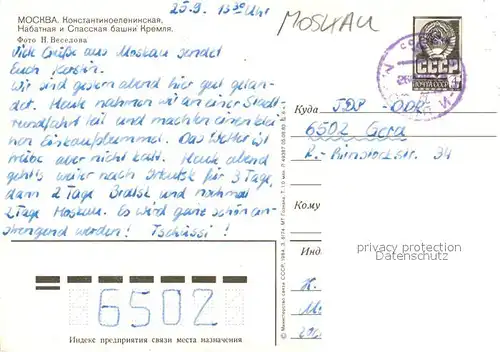 25.9. 13³⁰ Uhr
МОСКВА. Константиноеленинская,
Набатная и Спасская башни Кремля.
Фото Н. Веселова
Viele Grüße aus Moskau sendet
Euch
Wir sind gestern abend hier gut gelan-
det. Heute nahmen wir an einer Stadt
rundfahrt teil und machten einen klei
nen Einkaufsbummel. Das Wetter ist
trübe aber nicht kalt. Heute abend
geht's weiter nach Irkutsk für 3 Tage,
dann 2 Tage Bratsk und nochmal
2 Tage Moskau. Es wird ganz schön an-
strengend werden! Tschüssi!
6502
Индекс предприятия связи места назначения
© Министерство связи СССР, 1984. З. 8174. МТ Гознака.
MOSKAU
СССР
ПОЧТА
Куда
DDR
6502 Gera
34
Кому
Инд
privacy protection
Datenschutz